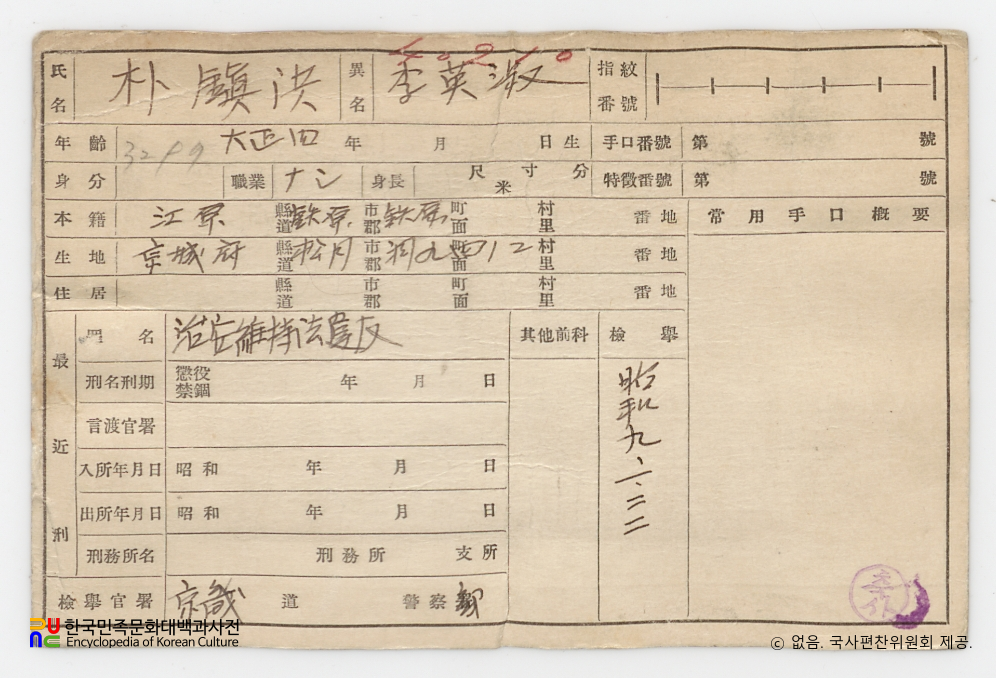 氏名 朴鎭洪 異名 李英淑 指紋番號
年齡 大正四 年 月 日生 手口番號 第 號
身分 職業 ナシ 身長 尺寸分 米 特徵番號 第 號
本籍 江原 縣道 鉄原 市郡 鉄原 町面 村里 番地 常用手口槪要
生地 京城府 縣道 松月 市郡 洞九四ノ二 町面 村里 番地
住居 縣道 市郡 町面 村里 番地
最近刑
罪名 治安維持法違反 其他前科 檢擧
刑名刑期 懲役 禁錮 年 月 日
昭和九、六、二二
言渡官署
入所年月日 昭和 年 月 日
出所年月日 昭和 年 月 日
刑務所名 刑務所 支所
檢擧官署 京畿 道 警察部
한국민족문화대백과사전
Encyclopedia of Korean Culture
© 없음. 국사편찬위원회 제공.